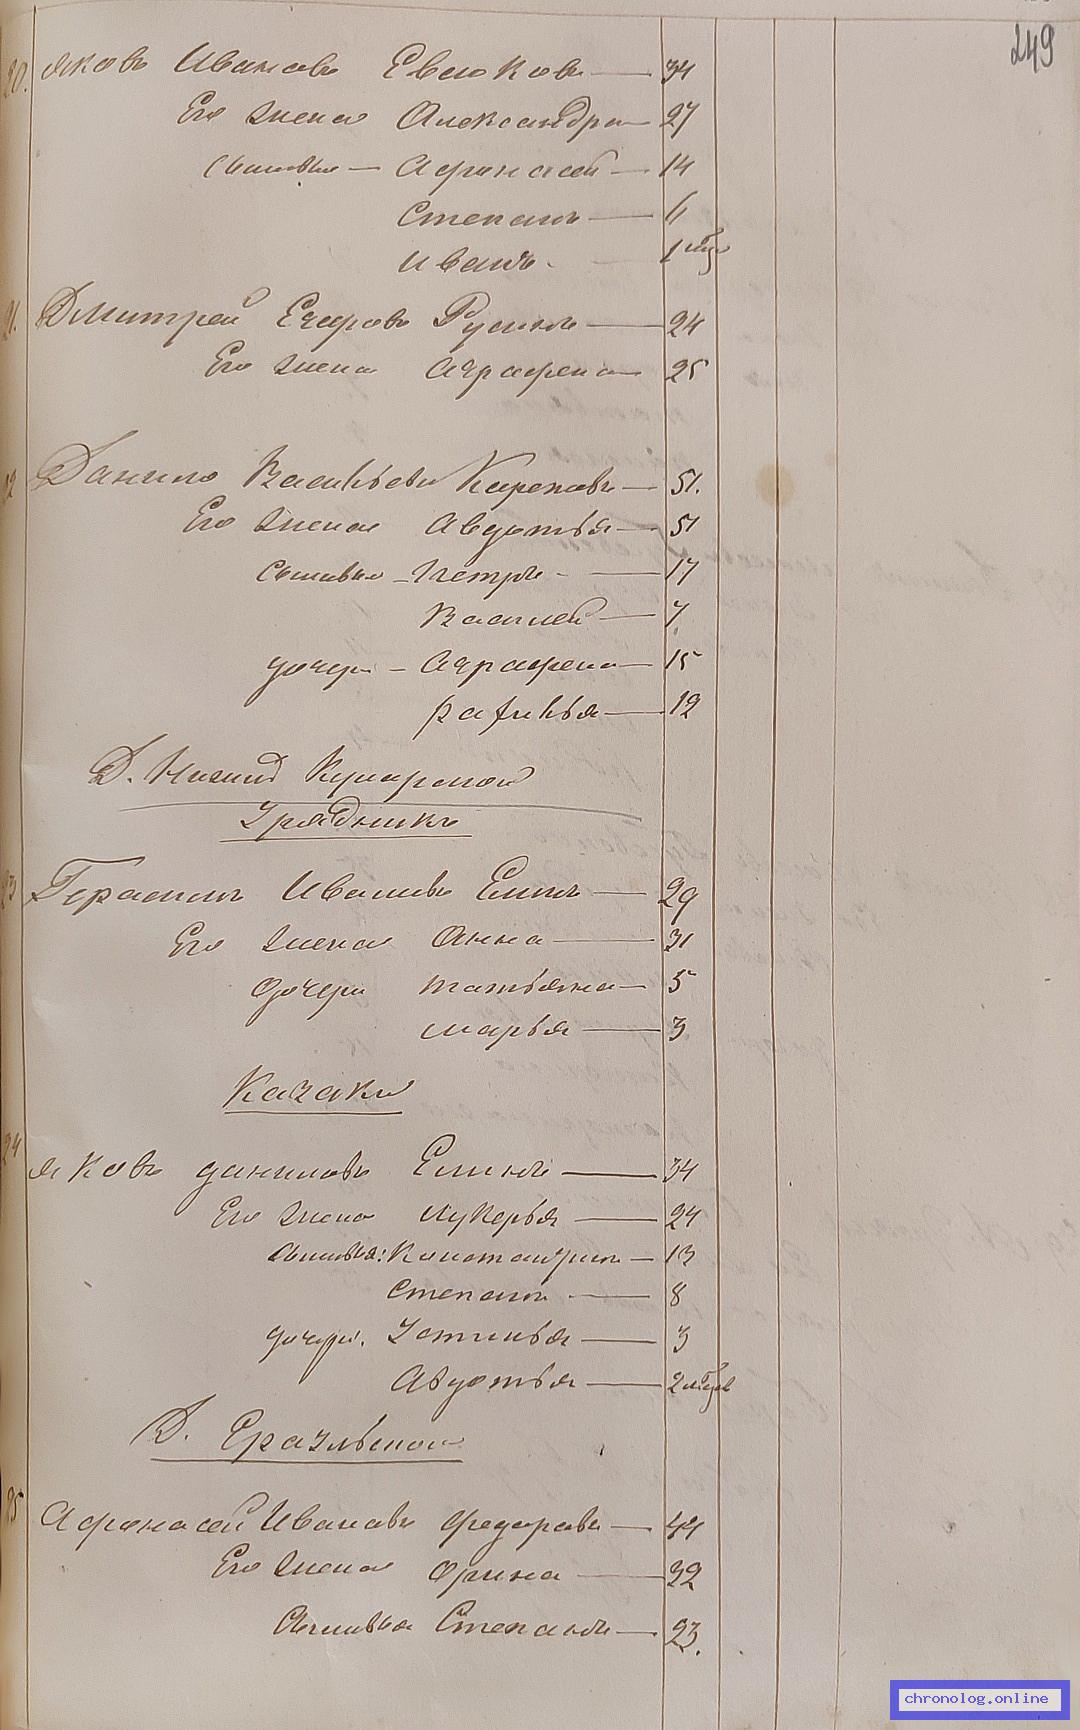 249
20. Яковъ Ивановъ Евсюковъ — 34
Его жена Александра — 27
сыновья — Афонасей — 14
Степанъ — 6
Иванъ. 1 мѣс
21. Дмитрей Егоровъ — 24
Его жена Аграфена 25
22 Данило Васильевъ — 51.
Его жена Авдотья — 51
сыновья — Петръ — 17
Василей — 7
дочери — Аграфена — 15
12
Д. Нижней
Урядникъ
23 Герасимъ Ивановъ Елинъ — 29
Его жена Анна — 31
дочери Татьяна — 5
Марья — 3
Казаки
24 Яковъ Даниловъ Елинъ — 34
Его жена Лукерья — 24
сыновья: Константинъ — 13
Степанъ — 8
дочери. Устинья — 3
Авдотья — 2
Д.
25 Афонасей Ивановъ Федоровъ — 44
Его жена Орина — 32
сыновья Степанъ — 23.
chronolog.online